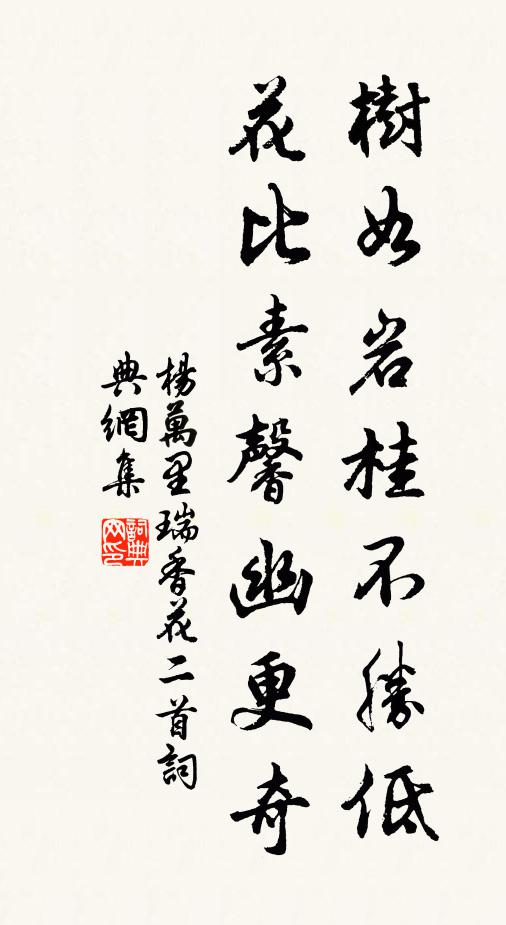 樹如岩桂不勝低
花比素馨幽更奇
楊萬里瑞香花二首詞
典網集
詞典网印